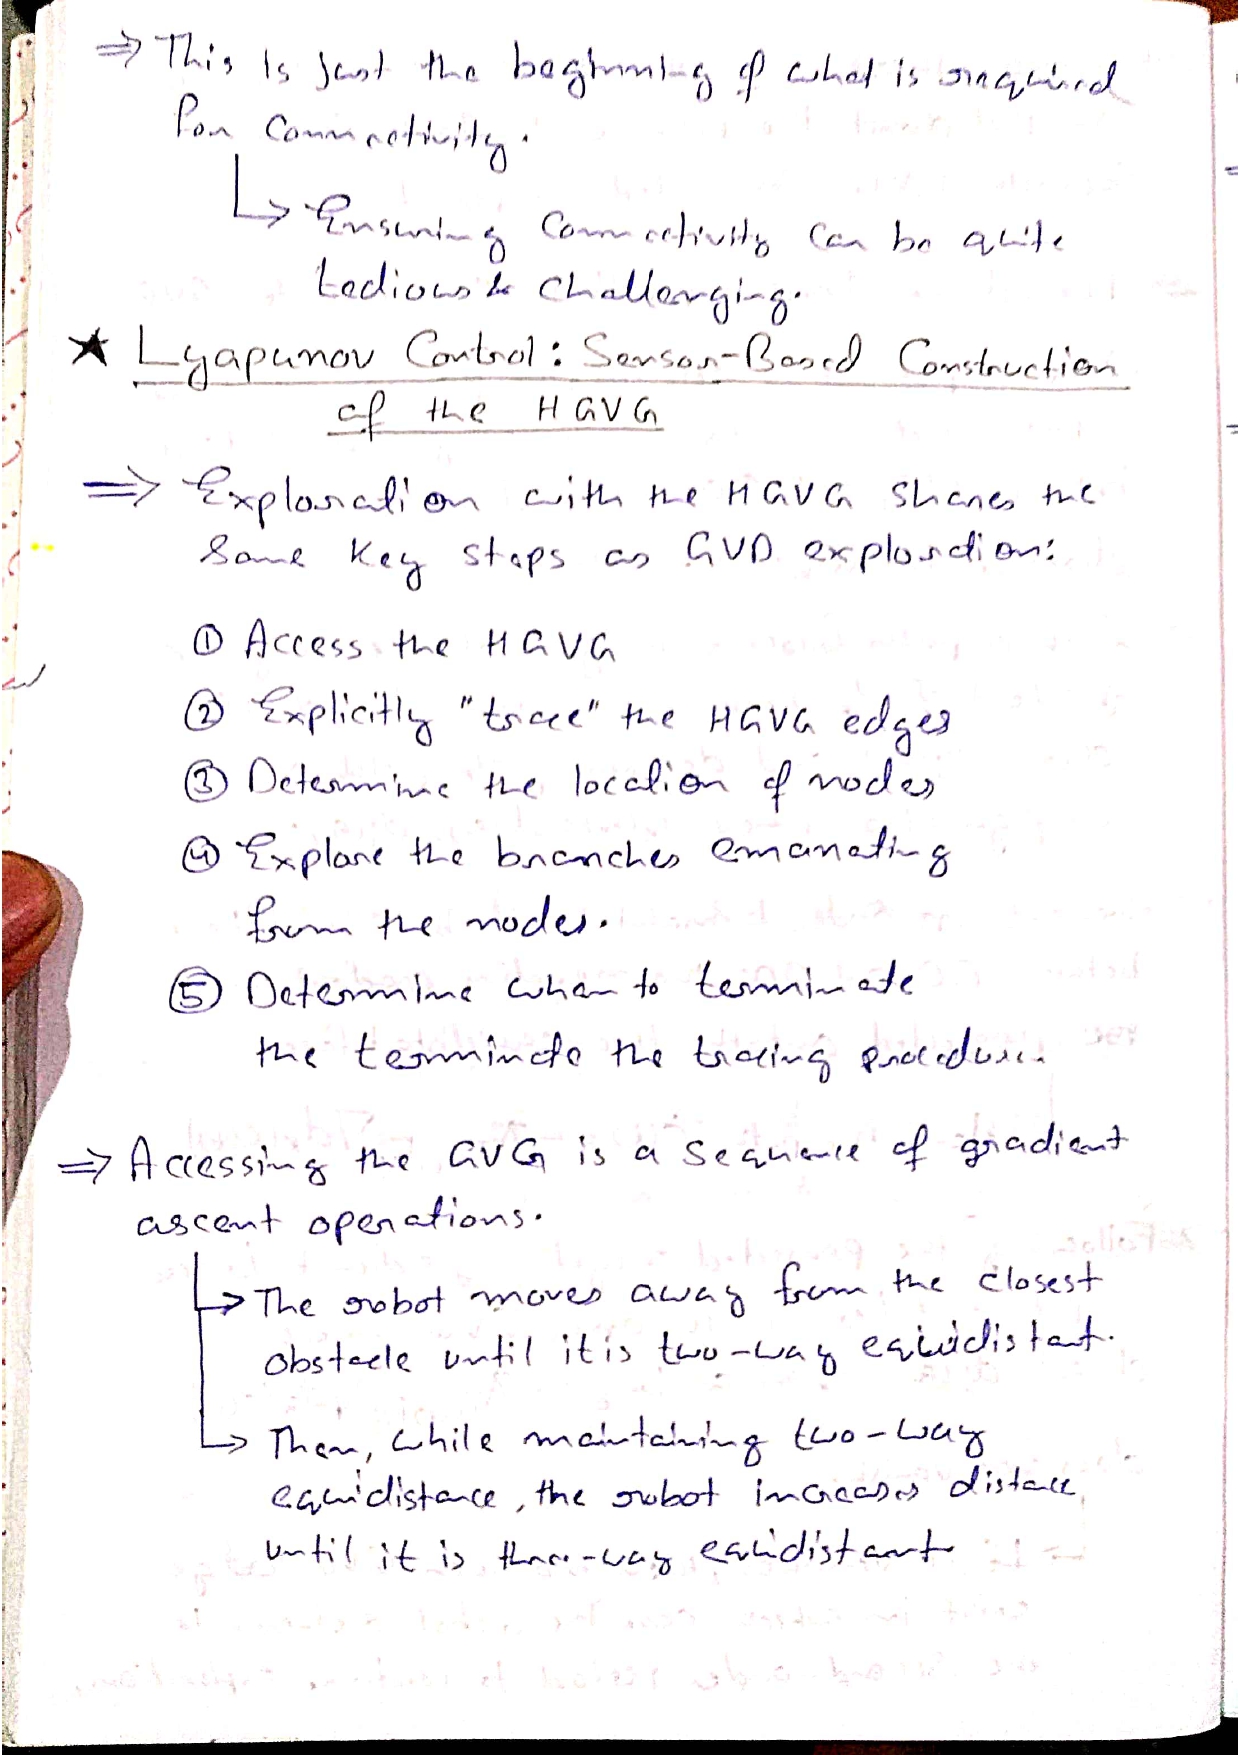 ⇒ This is just the beginning of what is required
for connectivity.
↳ Ensuring connectivity can be quite
tedious & challenging.
★ Lyapunov Control: Sensor-Based Construction
of the HGVG
⇒ Exploration with the HGVG shares the
same key steps as GVD exploration:
① Access the HGVG
② Explicitly "trace" the HGVG edges
③ Determine the location of nodes
④ Explore the branches emanating
from the nodes.
⑤ Determine when to terminate
the terminate the tracing procedure.
⇒ Accessing the GVG is a sequence of gradient
ascent operations.
↳ The robot moves away from the closest
obstacle until it is two-way equidistant.
↳ Then, while maintaining two-way
equidistance, the robot increases distance
until it is three-way equidistant